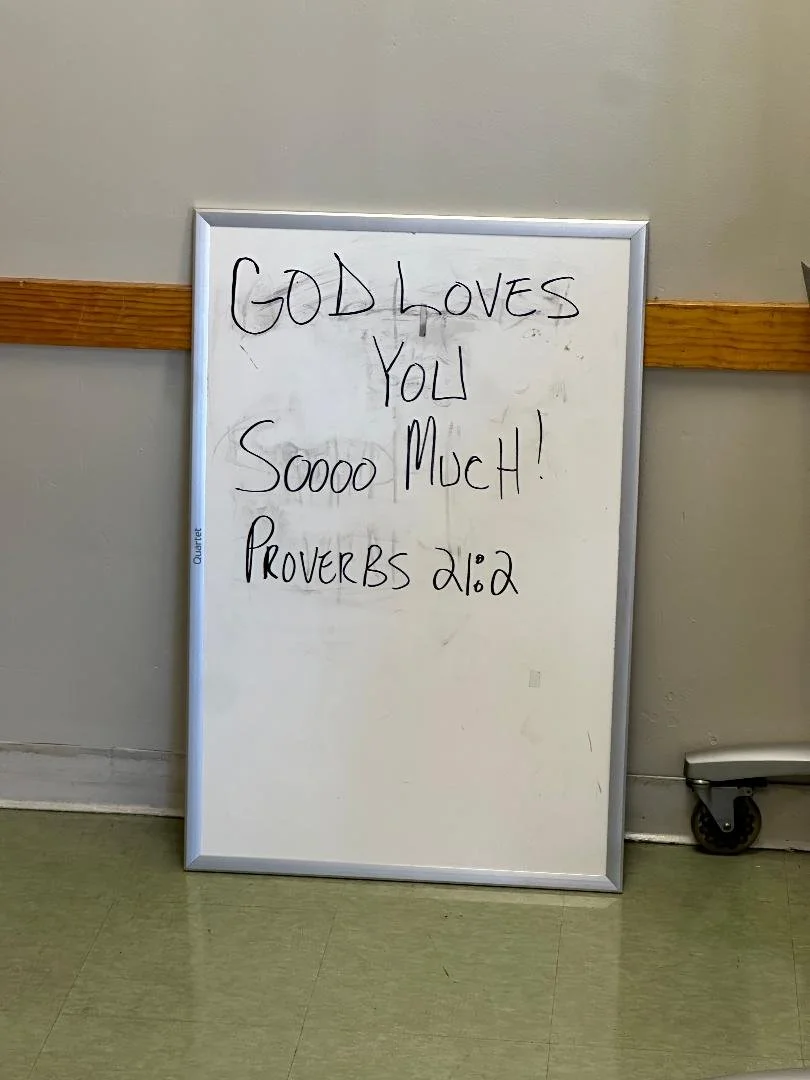 GOD LOVES
YOU
SOOOO MUCH!
PROVERBS 21:2
Quartet